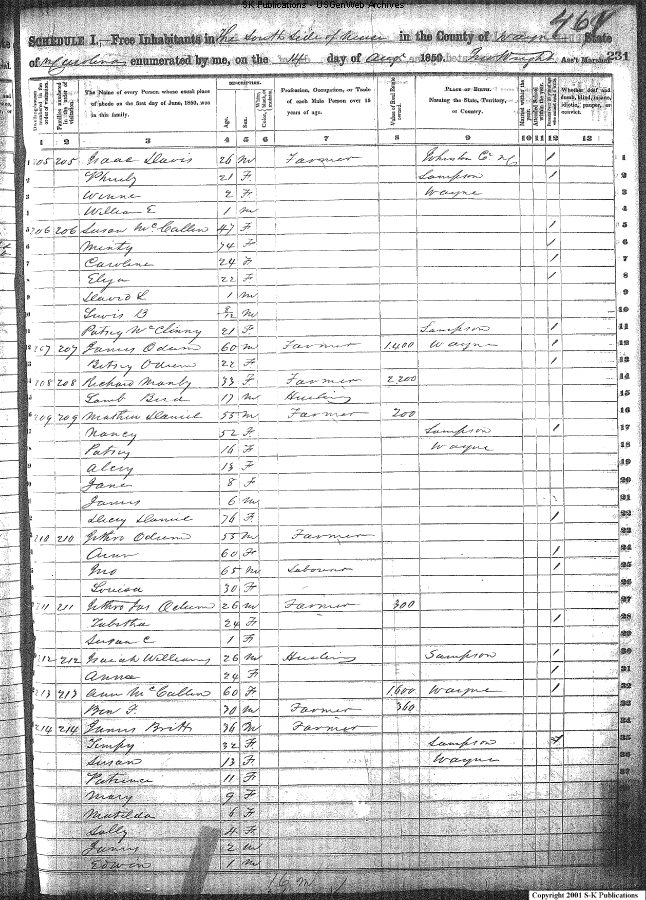 SK Publications - USGenWeb Archives
468
SCHEDULE I.—Free Inhabitants in The South Side of Neuse in the County of Wayne State
of N Carolina enumerated by me, on the 14 day of Augt 1850. Jno Wright Ass't Marshal. 231
DESCRIPTION.
Dwelling-houses numbered in the order of visitation.
Families numbered in the order of visitation.
The Name of every Person whose usual place of abode on the first day of June, 1850, was in this family.
Age.
Sex.
Color
Profession, Occupation, or Trade of each Male Person over 15 years of age.
Value of Real Estate owned.
PLACE OF BIRTH. Naming the State, Territory, or Country.
Married within the year.
Attended School within the year.
Whether deaf and dumb, blind, insane, idiotic, pauper, or convict.
1 2 3 4 5 6 7 8 9 10 11 12 13
1 205 205 Isaac Davis 26 M Farmer Johnston Co NC / 1
2 21 F Sampson / 2
3 Winne 2 F Wayne 3
4 William E 1 M 4
5 206 206 Susan McCullen 47 F / 5
6 Minty 74 F / 6
7 Caroline 24 F / 7
8 Eliza 22 F / 8
9 David L 1 M 9
10 Lewis B 8/12 M 10
11 Patsey McClinny 21 F Sampson / 11
12 207 207 James Odum 60 M Farmer 1,400 Wayne / 12
13 Betsey Odum 22 F / 13
14 208 208 Richard Manly 33 F Farmer 2200 14
15 Lamb Bird 17 M 15
16 209 209 Mathew Daniel 55 M Farmer 200 16
17 Nancy 52 F Sampson / 17
18 Patsey 16 F Wayne 18
19 13 F 19
20 Jane 8 F 20
21 James 6 M 21
22 Daniel 76 F / 22
23 210 210 Jethro Odum 55 M Farmer
24 Ann 60 F / 24
25 Jno 65 M Labourer / 25
26 Louisa 30 F
27 211 211 Jethro Jas Odum 26 M Farmer 300 27
28 Tabitha 24 F / 28
29 Susan C 1 F 29
30 212 212 Isaiah Williams 26 M Sampson / 30
31 Anna 24 F / 31
32 213 213 Ann McCullen 60 F 1600 Wayne / 32
33 Ben F. 30 M Farmer 360
34 214 214 James Britt 36 M Farmer
35 Tempy 32 F Sampson / 35
36 Susan 13 F Wayne
37 Patience 11 F
Mary 9 F
Matilda 6 F
Sally 4 F
James 2 M
Edwin 1 M
16 M
Copyright 2001 S-K Publications